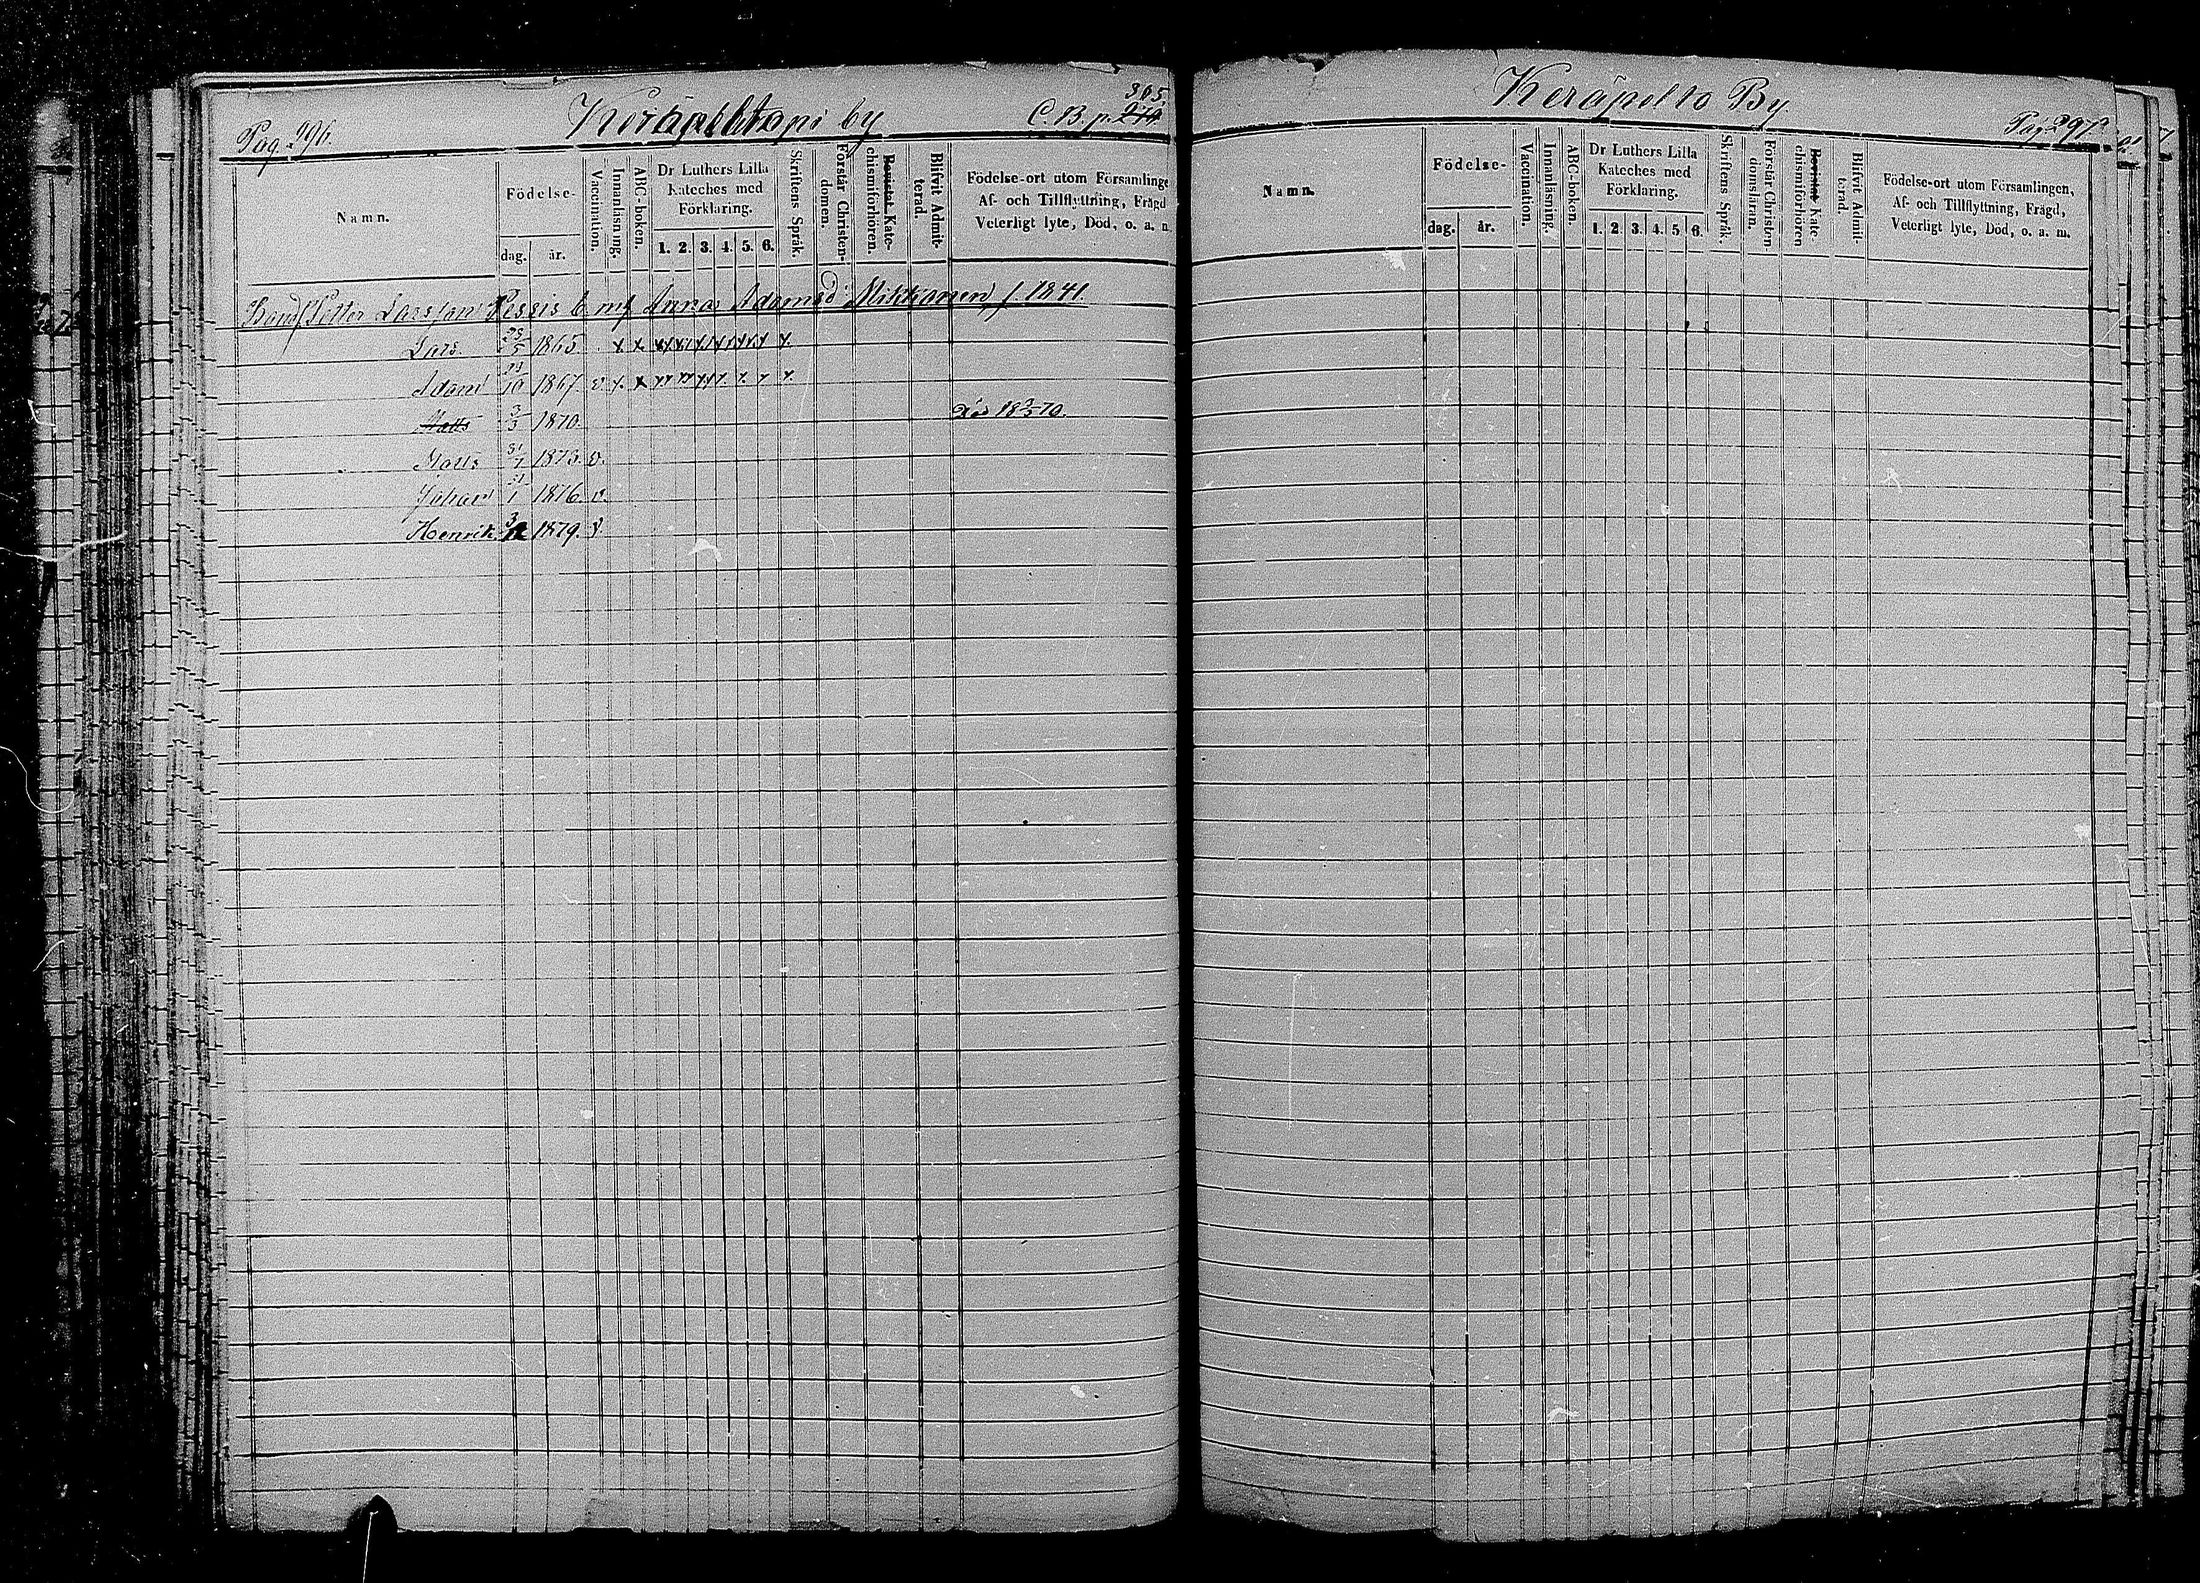 Pag. 296.
by
C. B. p. 274
305
Namn.
Födelse-
dag.
år.
Vaccination.
Innanläsning.
ABC-boken.
Dr Luthers Lilla
Kateches med
Förklaring.
1. 2. 3. 4. 5. 6.
Skriftens Språk.
Förstår Christen-
domen.
Bevistat Kate-
chismiförhören.
Blifvit Admit-
terad.
Födelse-ort utom Församlinge
Af- och Tillflyttning, Frägd
Veterligt lyte, Död, o. a. m
Petter Larsson Pessis o. mf Anna Adamsd Mikkonen, f. 1841.
Lars 23/5 1865. x x x x x x x x x
Adam 1867. v x. x x x x x x x x.
Matts 3/3 1870. Död 18 70.
Matts 1873. v.
Johan 1876. v.
Henrik 1879. v
Keräpelto By.
Pag 297
Namn.
Födelse-
dag.
år.
Vaccination.
Innanläsning.
ABC-boken.
Dr Luthers Lilla
Kateches med
Förklaring.
1. 2 3. 4. 5 6.
Skriftens Språk.
Förstår Christen-
domsläran.
Bevistat Kate-
chismiförhören
Blifvit Admit-
terad.
Födelse-ort utom Församlingen,
Af- och Tillflyttning, Frägd,
Veterligt lyte, Död, o. a. m.